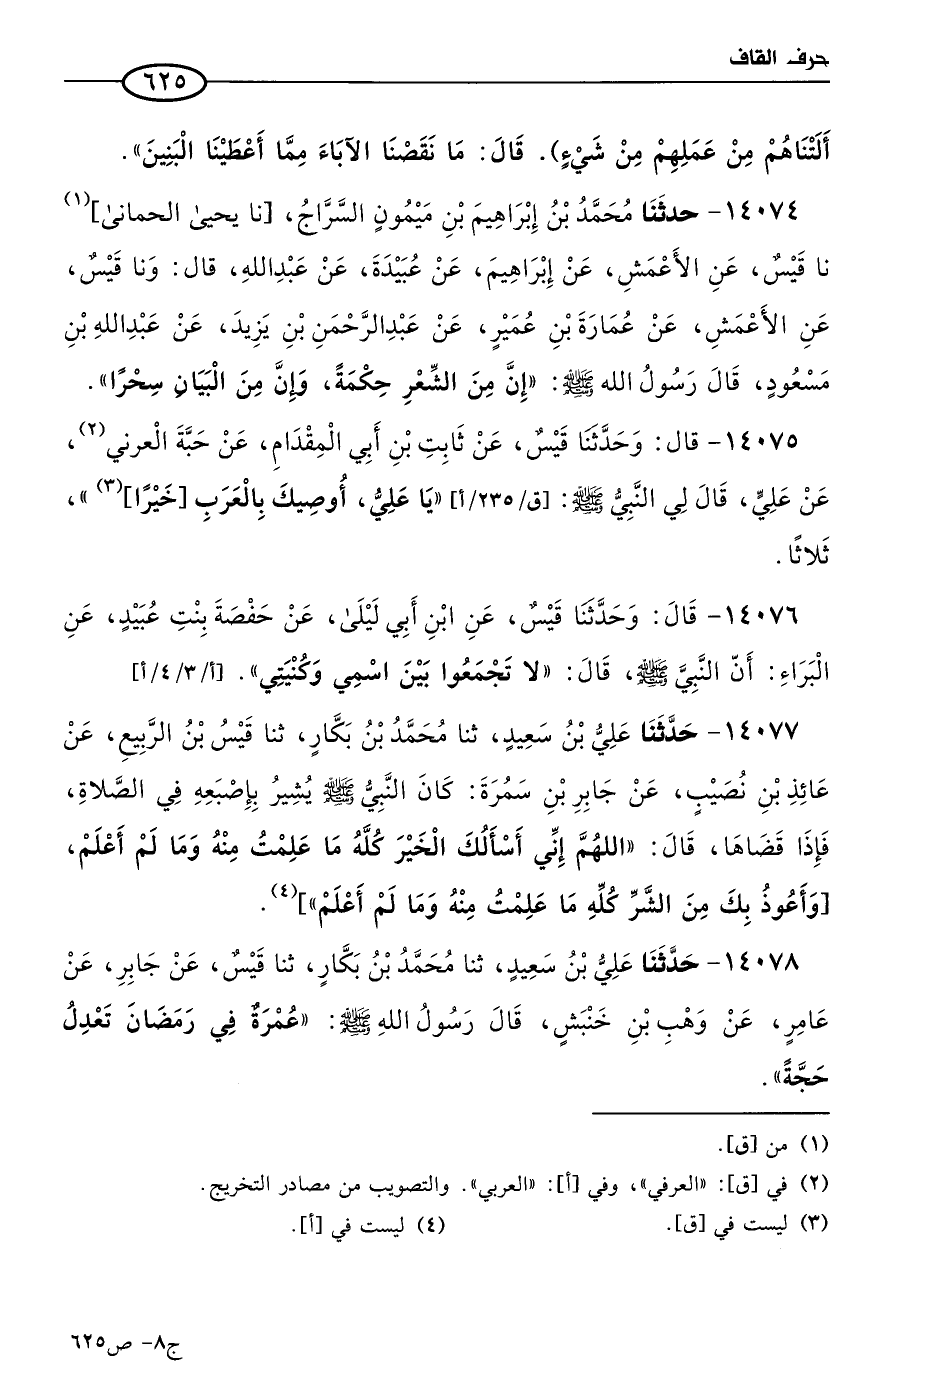 حرف القاف
٦٢٥
أَلَتْنَاهُمْ مِنْ عَمَلِهِمْ مِنْ شَيْءٍ). قَالَ: مَا نَقَصْنَا الآبَاءَ مِمَّا أَعْطَيْنَا الْبَنِينَ».
١٤٠٧٤- حدثَنَا مُحَمَّدُ بْنُ إِبْرَاهِيمَ بْنِ مَيْمُونٍ السَّرَّاجُ، [نا يحيىٰ الحمانىٰ](١)
نا قَيْسٌ، عَنِ الأَعْمَشِ، عَنْ إِبْرَاهِيمَ، عَنْ عُبَيْدَةَ، عَنْ عَبْدِاللهِ، قال: وَنا قَيْسٌ،
عَنِ الأَعْمَشِ، عَنْ عُمَارَةَ بْنِ عُمَيْرٍ، عَنْ عَبْدِالرَّحْمَنِ بْنِ يَزِيدَ، عَنْ عَبْدِاللهِ بْنِ
مَسْعُودٍ، قَالَ رَسُولُ الله ﷺ: «إِنَّ مِنَ الشِّعْرِ حِكْمَةً، وَإِنَّ مِنَ الْبَيَانِ سِحْرًا».
١٤٠٧٥- قال: وَحَدَّثَنَا قَيْسٌ، عَنْ ثَابِتِ بْنِ أَبِي الْمِقْدَامِ، عَنْ حَبَّةَ الْعرني(٢)،
عَنْ عَلِيٍّ، قَالَ لِي النَّبِيُّ ﷺ: [ق/٢٣٥/أ] «يَا عَلِيُّ، أُوصِيكَ بِالْعَرَبِ [خَيْرًا](٣)»،
ثَلاثًا.
١٤٠٧٦- قَالَ: وَحَدَّثَنَا قَيْسٌ، عَنِ ابْنِ أَبِي لَيْلَىٰ، عَنْ حَفْصَةَ بِنْتِ عُبَيْدٍ، عَنِ
الْبَرَاءِ: أَنّ النَّبِيَّ ﷺ، قَالَ: «لا تَجْمَعُوا بَيْنَ اسْمِي وَكُنْيَتِي». [أ/٣/٤/أ]
١٤٠٧٧- حَدَّثَنَا عَلِيُّ بْنُ سَعِيدٍ، ثنا مُحَمَّدُ بْنُ بَكَّارٍ، ثنا قَيْسُ بْنُ الرَّبِيعِ، عَنْ
عَائِذِ بْنِ نُصَيْبٍ، عَنْ جَابِرِ بْنِ سَمُرَةَ: كَانَ النَّبِيُّ ﷺ يُشِيرُ بِإِصْبَعِهِ فِي الصَّلاةِ،
فَإِذَا قَضَاهَا، قَالَ: «اللهُمَّ إِنِّي أَسْأَلُكَ الْخَيْرَ كُلَّهُ مَا عَلِمْتُ مِنْهُ وَمَا لَمْ أَعْلَمْ،
[وَأَعُوذُ بِكَ مِنَ الشَّرِّ كُلِّهِ مَا عَلِمْتُ مِنْهُ وَمَا لَمْ أَعْلَمْ»](٤).
١٤٠٧٨- حَدَّثَنَا عَلِيُّ بْنُ سَعِيدٍ، ثنا مُحَمَّدُ بْنُ بَكَّارٍ، ثنا قَيْسٌ، عَنْ جَابِرٍ، عَنْ
عَامِرٍ، عَنْ وَهْبِ بْنِ خَنْبَشٍ، قَالَ رَسُولُ اللهِ ﷺ: «عُمْرَةٌ فِي رَمَضَانَ تَعْدِلُ
حَجَّةً».
(١) من [ق].
(٢) في [ق]: «العرفي»، وفي [أ]: «العربي». والتصويب من مصادر التخريج.
(٣) ليست في [ق]. (٤) ليست في [أ].
ج٨- ص٦٢٥